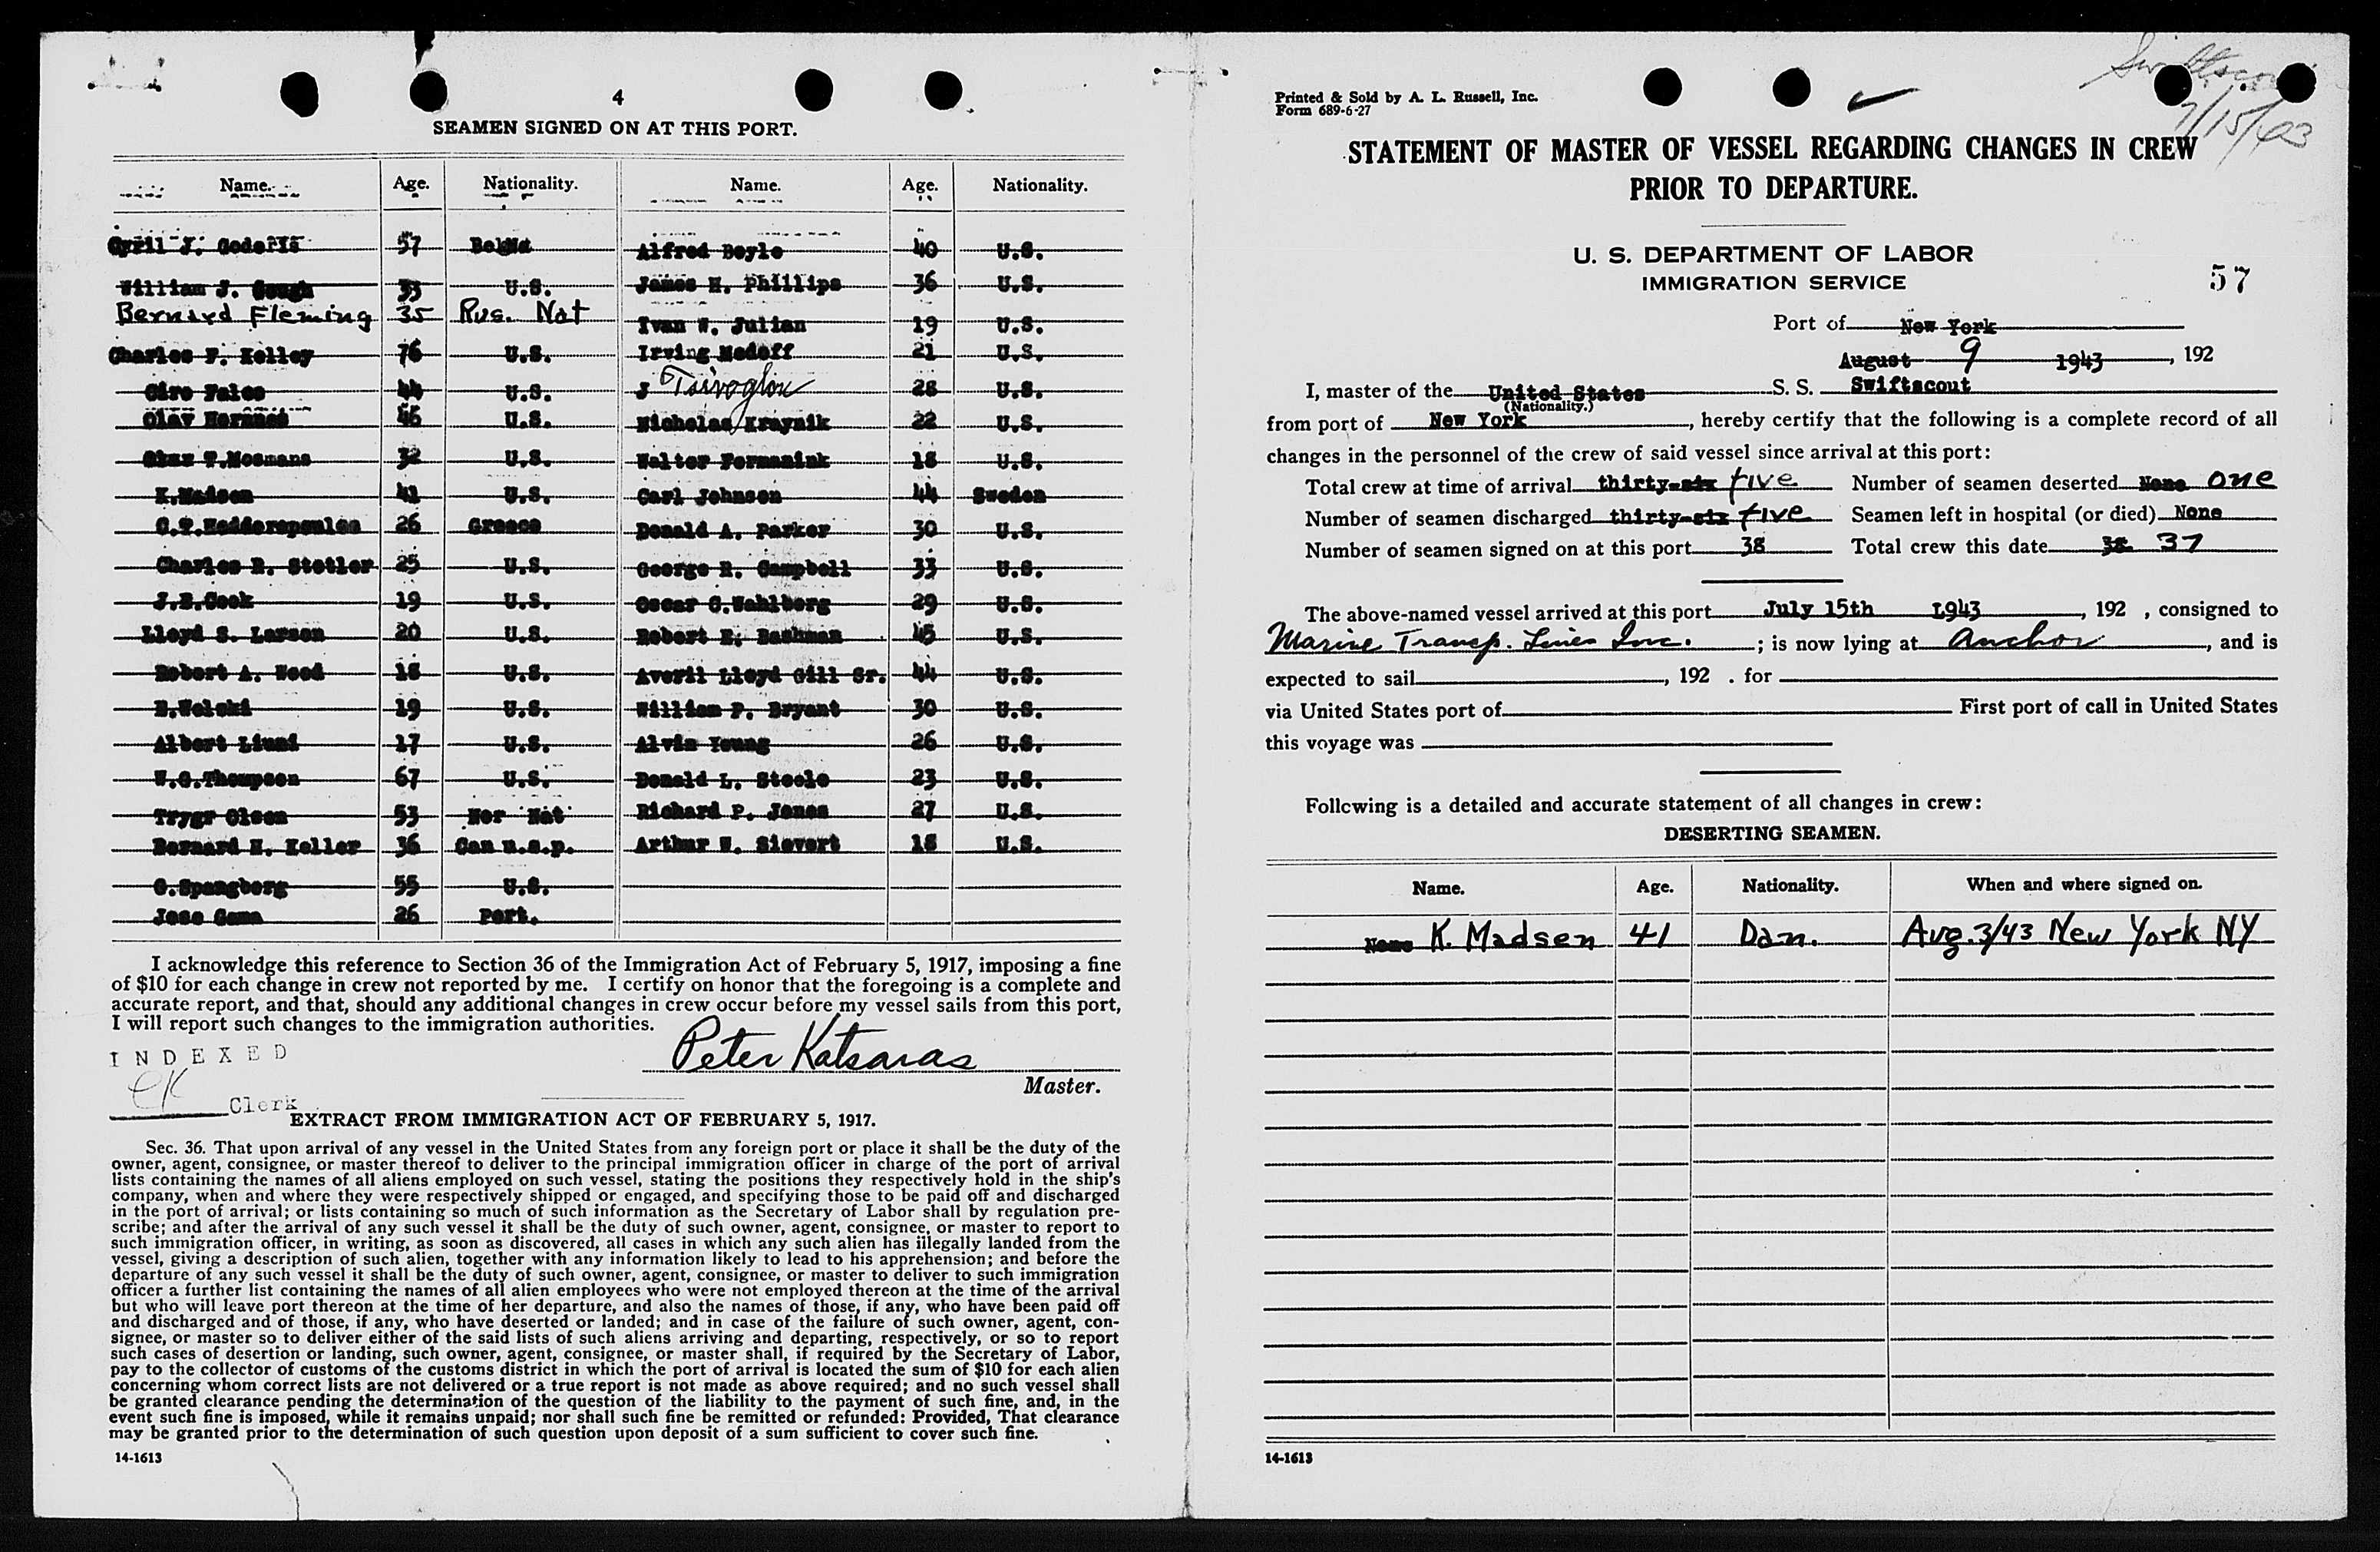 4
SEAMEN SIGNED ON AT THIS PORT.
Name. Age. Nationality. Name. Age. Nationality.
Cyril J. Goderis 57 Alfred Boyle 40 U.S.
William J. Gough 33 U.S. James H. Phillips 36 U.S.
Bernard Fleming 35 Rus. Nat Ivan W. Julian 19 U.S.
Charles F. Kelley 76 U.S. Irving Medoff 21 U.S.
Ciro Falco 44 U.S. J Tsivoglou 28 U.S.
Olav 46 U.S. Nicholas Kraynik 22 U.S.
Mosmans 32 U.S. Walter Formanink 18 U.S.
K. Madsen 41 U.S. Carl Johnson 44 Sweden
26 Greece Donald A. Parker 30 U.S.
Charles R. Stetler 25 U.S. George R. Campbell 33 U.S.
J.B.Cook 19 U.S. Oscar G.Wahlborg 29 U.S.
Lloyd S. Larson 20 U.S. Robert E. Bashman 45 U.S.
Robert A. Wood 18 U.S. Averil Lloyd Gill Sr. 44 U.S.
B.Wolski 19 U.S. William P. Bryant 30 U.S.
Albert Liuni 17 U.S. Alvin Young 26 U.S.
W.G.Thompson 67 U.S. Donald L. Steele 23 U.S.
Trygr Olsen 53 Nor Nat Richard P. Jones 27 U.S.
Bernard H. Keller 36 Can n.s.p. Arthur W. Sievert 18 U.S.
G.Spangberg 55 U.S.
Jose Gama 26 Port.
I acknowledge this reference to Section 36 of the Immigration Act of February 5, 1917, imposing a fine
of $10 for each change in crew not reported by me. I certify on honor that the foregoing is a complete and
accurate report, and that, should any additional changes in crew occur before my vessel sails from this port,
I will report such changes to the immigration authorities.
Peter Katsaras
Master.
INDEXED
CK Clerk
EXTRACT FROM IMMIGRATION ACT OF FEBRUARY 5, 1917.
Sec. 36. That upon arrival of any vessel in the United States from any foreign port or place it shall be the duty of the
owner, agent, consignee, or master thereof to deliver to the principal immigration officer in charge of the port of arrival
lists containing the names of all aliens employed on such vessel, stating the positions they respectively hold in the ship's
company, when and where they were respectively shipped or engaged, and specifying those to be paid off and discharged
in the port of arrival; or lists containing so much of such information as the Secretary of Labor shall by regulation pre-
scribe; and after the arrival of any such vessel it shall be the duty of such owner, agent, consignee, or master to report to
such immigration officer, in writing, as soon as discovered, all cases in which any such alien has illegally landed from the
vessel, giving a description of such alien, together with any information likely to lead to his apprehension; and before the
departure of any such vessel it shall be the duty of such owner, agent, consignee, or master to deliver to such immigration
officer a further list containing the names of all alien employees who were not employed thereon at the time of the arrival
but who will leave port thereon at the time of her departure, and also the names of those, if any, who have been paid off
and discharged and of those, if any, who have deserted or landed; and in case of the failure of such owner, agent, con-
signee, or master so to deliver either of the said lists of such aliens arriving and departing, respectively, or so to report
such cases of desertion or landing, such owner, agent, consignee, or master shall, if required by the Secretary of Labor,
pay to the collector of customs of the customs district in which the port of arrival is located the sum of $10 for each alien
concerning whom correct lists are not delivered or a true report is not made as above required; and no such vessel shall
be granted clearance pending the determination of the question of the liability to the payment of such fine, and, in the
event such fine is imposed, while it remains unpaid; nor shall such fine be remitted or refunded: Provided, That clearance
may be granted prior to the determination of such question upon deposit of a sum sufficient to cover such fine.
14-1613
Swiftscout
7/15/43
Printed & Sold by A. L. Russell, Inc.
Form 689-6-27
STATEMENT OF MASTER OF VESSEL REGARDING CHANGES IN CREW
PRIOR TO DEPARTURE.
U. S. DEPARTMENT OF LABOR
IMMIGRATION SERVICE
57
Port of New York
August 9 1943, 192
I, master of the United States S. S. Swiftscout
(Nationality.)
from port of New York, hereby certify that the following is a complete record of all
changes in the personnel of the crew of said vessel since arrival at this port:
Total crew at time of arrival thirty-six five Number of seamen deserted None one
Number of seamen discharged thirty-six five Seamen left in hospital (or died) None
Number of seamen signed on at this port 38 Total crew this date 38 37
The above-named vessel arrived at this port July 15th 1943, 192 , consigned to
Marine Transp. Lines Inc. ; is now lying at Anchor, and is
expected to sail , 192 . for
via United States port of First port of call in United States
this voyage was
Following is a detailed and accurate statement of all changes in crew:
DESERTING SEAMEN.
Name. Age. Nationality. When and where signed on.
None K. Madsen 41 Dan. Aug. 3/43 New York NY
14-1613